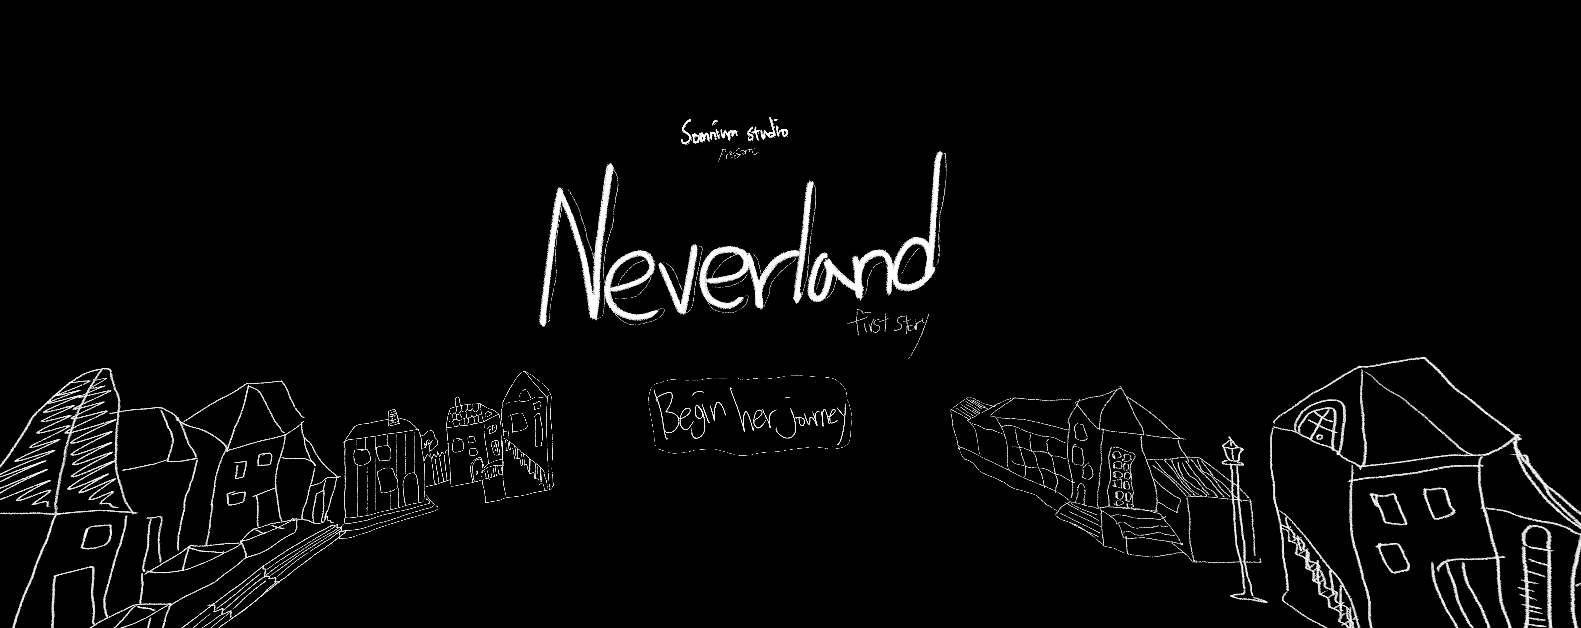 Somnium studio
Present
Neverland
first story
Begin her journey